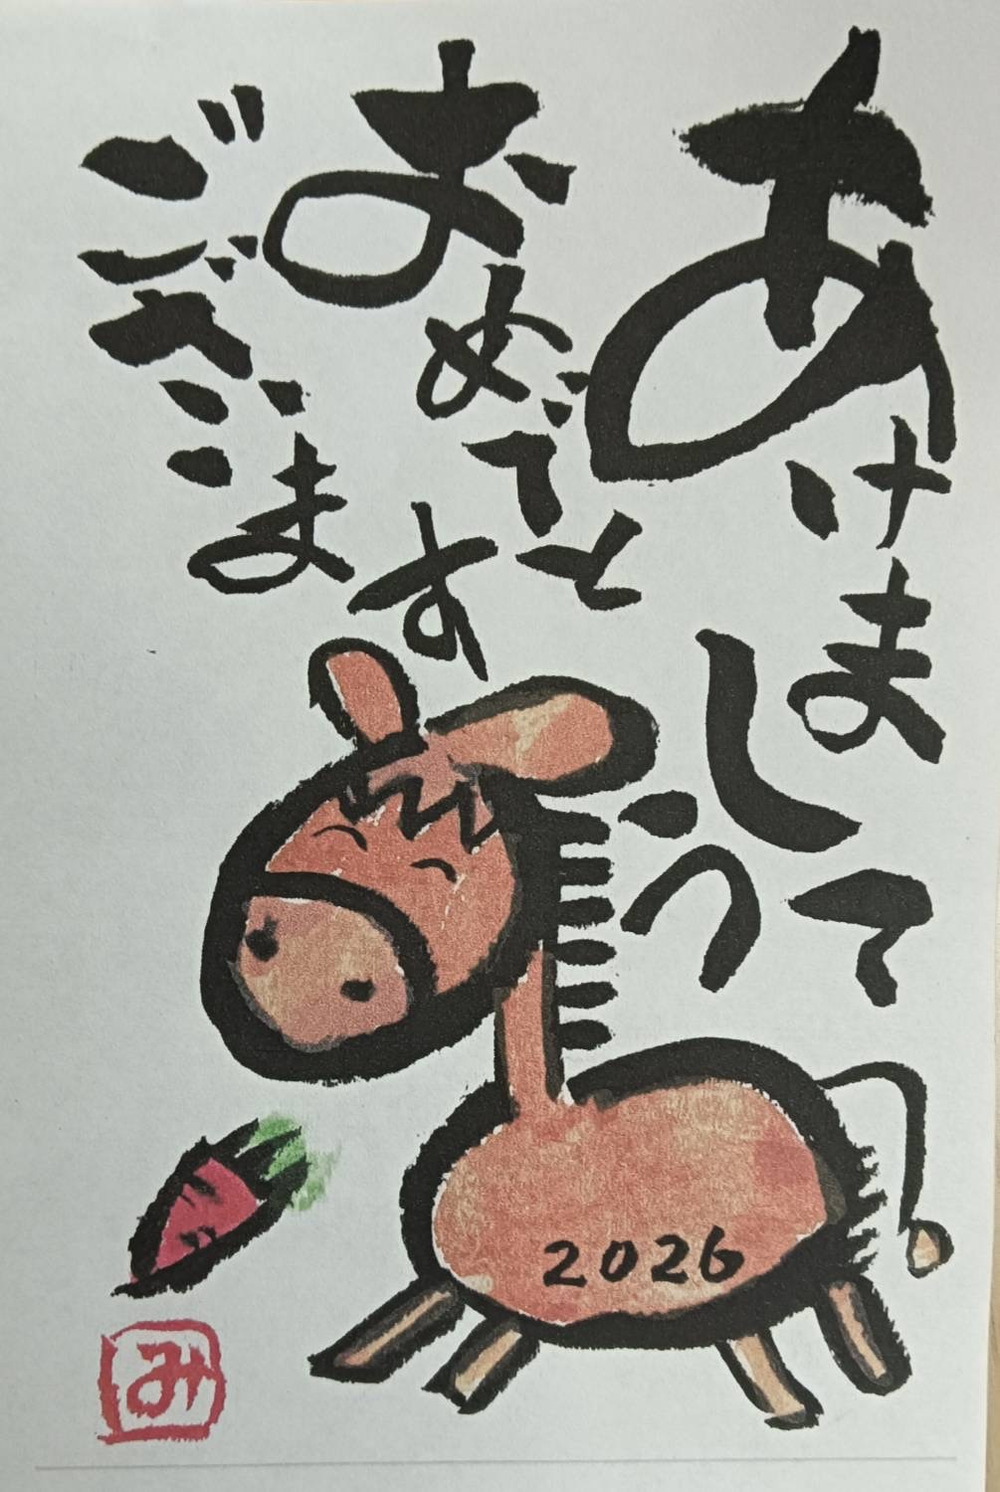 あけまして
おめでとう
ございます
2026
み